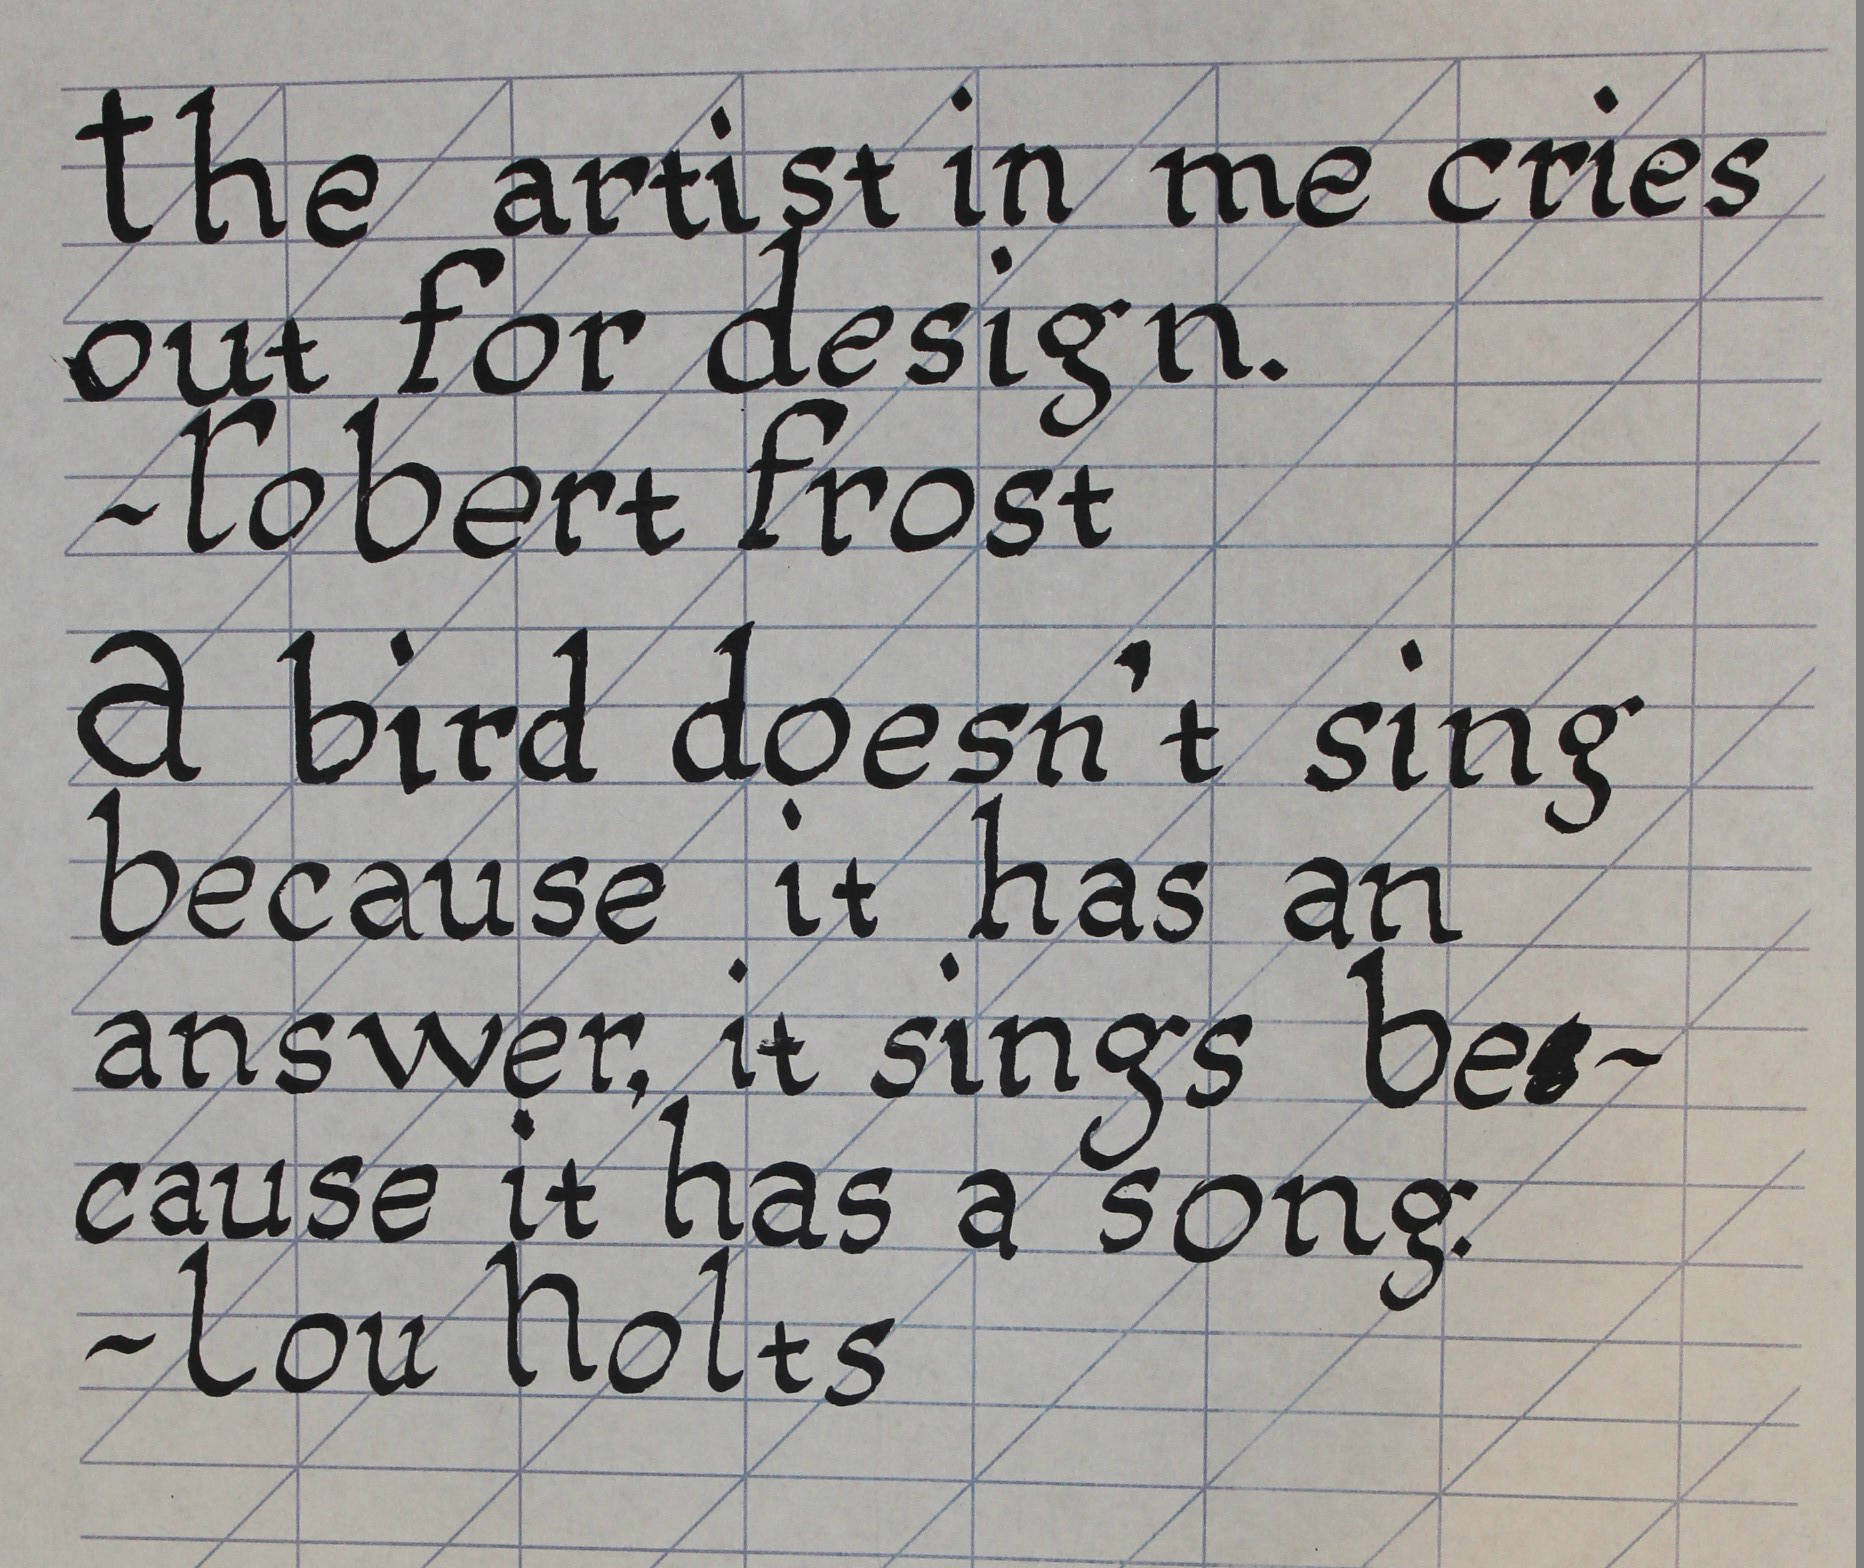 the artist in me cries
out for design.
~robert frost
a bird doesn't sing
because it has an
answer, it sings be~
cause it has a song.
~lou holts